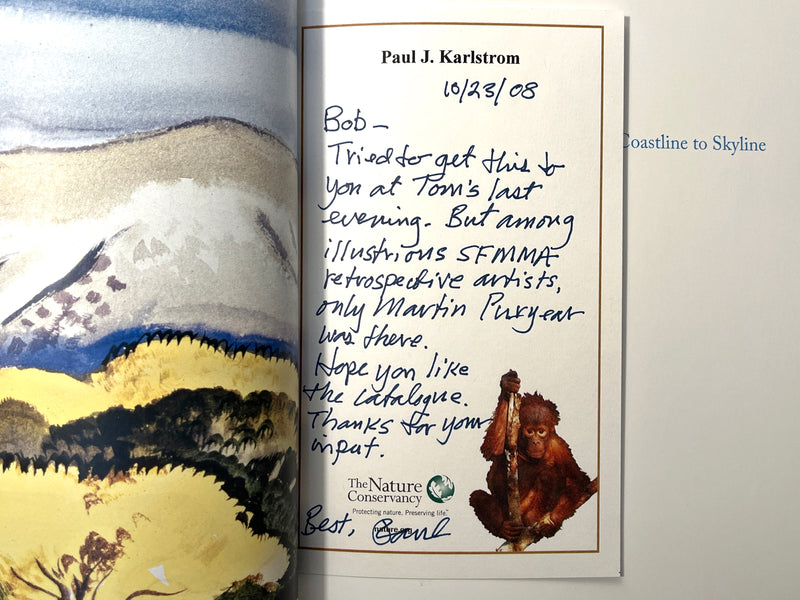 Paul J. Karlstrom
10/23/08
Bob –
Tried to get this to
you at Tom's last
evening. But among
illustrious SFMMA
retrospective artists,
only Martin Puryear
was there.
Hope you like
the catalogue.
Thanks for your
input.
The Nature
Conservancy
Protecting nature. Preserving life.™
Best, Paul
nature.org
Coastline to Skyline